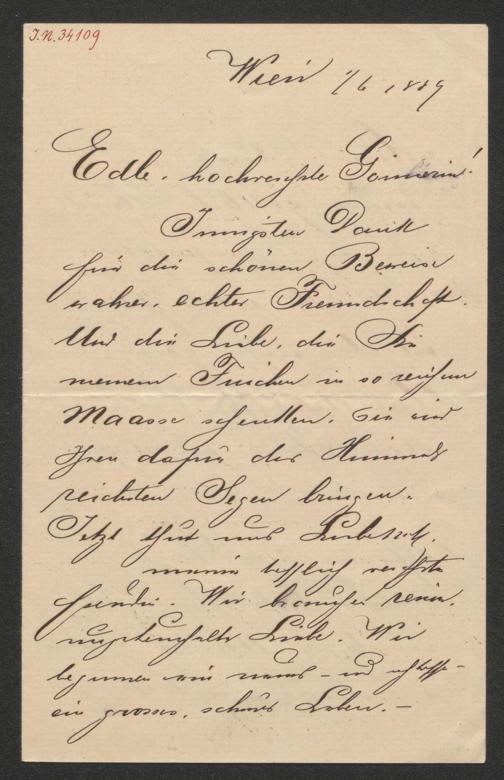 J.N. 34109
Wien 1/6 1889
Edle, hochverehrte Gönnerin!
Innigsten Dank
für die schönen Beweise
wahrer, echter Freundschaft.
Und die Liebe, die Sie
meinem in so reichem
Maasse schenkten. Sie wird
Ihnen dafür des Himmels
reichsten Segen bringen.
Jetzt thut uns Liebe
meine verehrte
Freundin. Wir brauchen reine,
ungeheuchelte Liebe. Wir
beginnen ein neues – und
ein grosses, schönes Leben. –